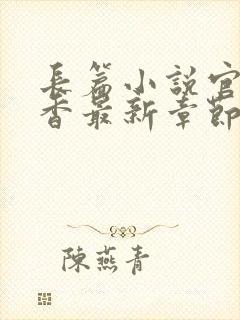 長篇小說官
香最新章節
陳燕青